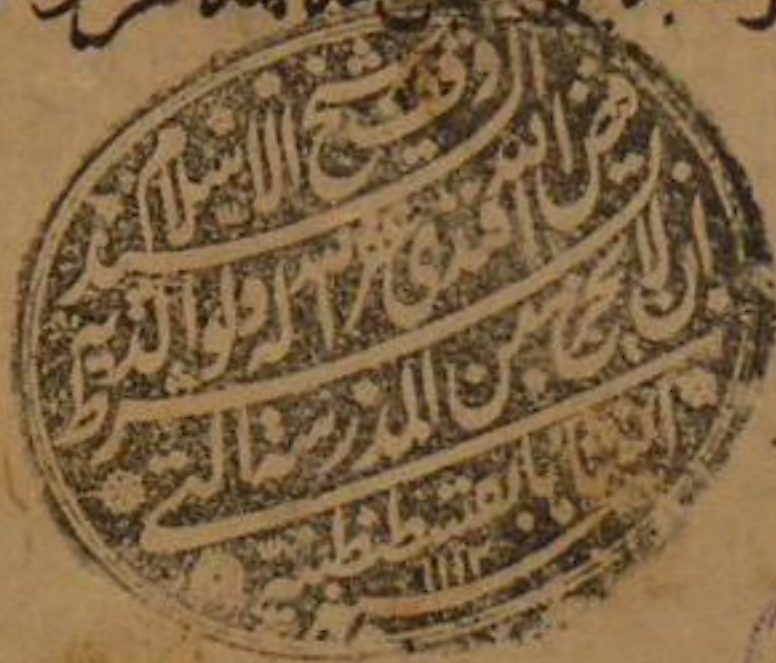 وقف شيخ الاسلام السيد
فيض الله افندى غفر الله له ولوالديه بشرط
ان لا يخرج من المدرسة التى
انشاها بقسطنطينية
١١١٢